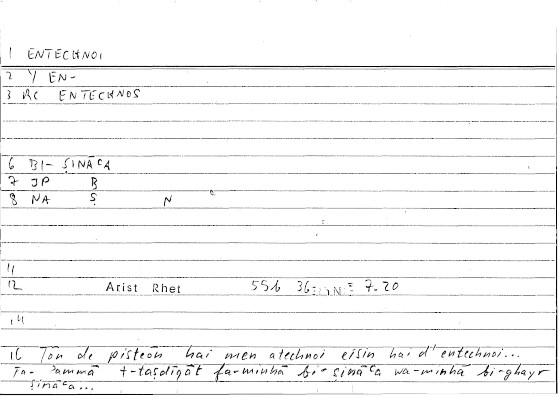 1 ENTECHNOI
2 Y EN-
3 RC ENTECHNOS
6 BI- ṢINĀʿA
7 JP B
8 NA Ṣ N
11
12 Arist Rhet 55b 36 7.20
14
16 Tōn de pisteōn hai men atechnoi eisin hai d'entechnoi...
Fa-ʾammā t-taṣdīqāt fa-minhā bi-ṣināʿa wa-minhā bi-ghayr
ṣināʿa...